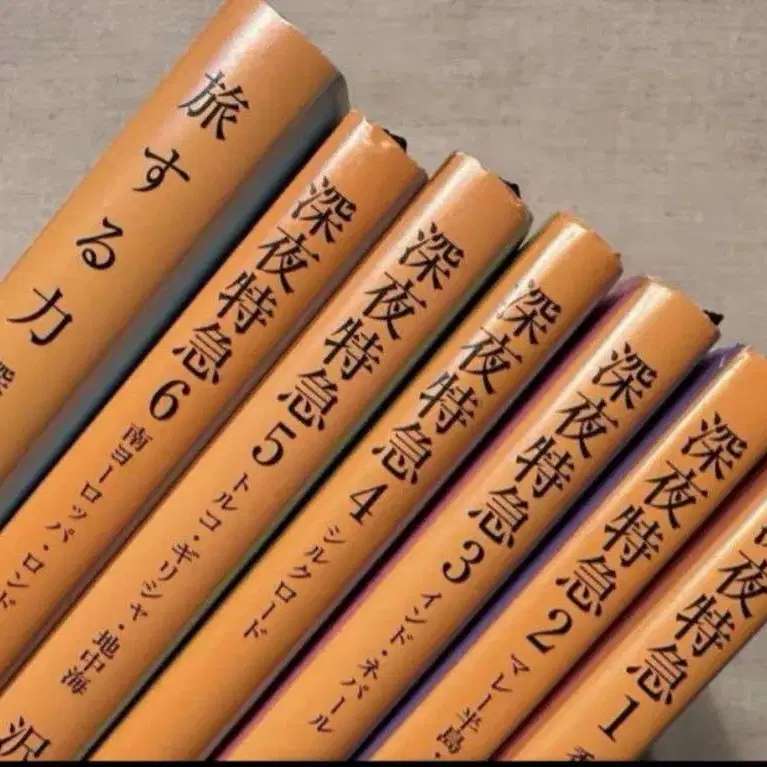 旅する力
深夜特急6 南ヨーロッパ・ロンド
沢
深夜特急5 トルコ・ギリシャ・地中海
深夜特急4 シルクロード
深夜特急3 インド・ネパール
深夜特急2 マレー半島・
深夜特急1 香